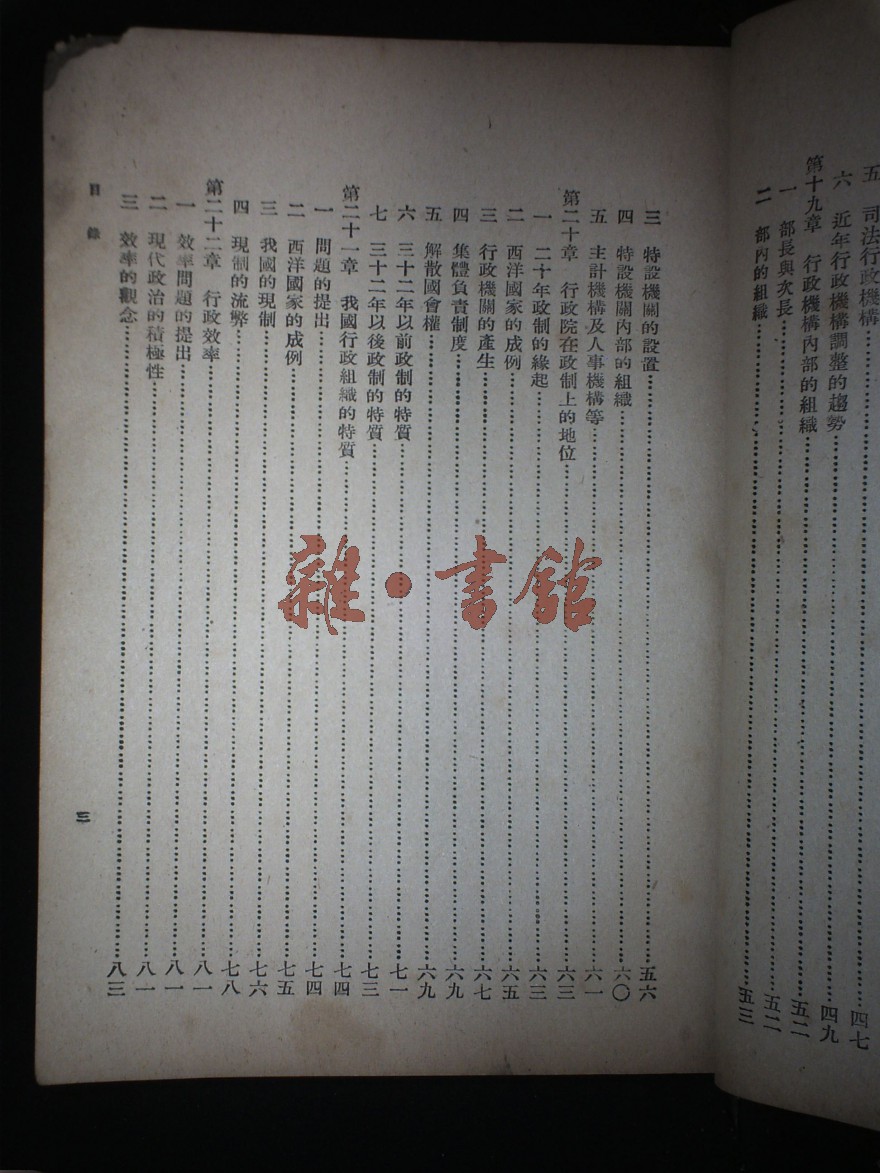 五 司法行政機構……四七
六 近年行政機構調整的趨勢……四九
第十九章 行政機構內部的組織……五二
一 部長與次長……五二
二 部內的組織……五三
三 特設機關的設置……五六
四 特設機關內部的組織……六〇
五 主計機構及人事機構等……六一
第二十章 行政院在政制上的地位……六三
一 二十年政制的緣起……六三
二 西洋國家的成例……六五
三 行政機關的產生……六七
四 集體負責制度……六九
五 解散國會權……六九
六 三十二年以前政制的特質……七一
七 三十二年以後政制的特質……七三
第二十一章 我國行政組織的特質……七四
一 問題的提出……七四
二 西洋國家的成例……七五
三 我國的現制……七六
四 現制的流弊……七八
第二十二章 行政效率……八一
一 效率問題的提出……八一
二 現代政治的積極性……八一
三 效率的觀念……八三
目錄
三
雜·書館